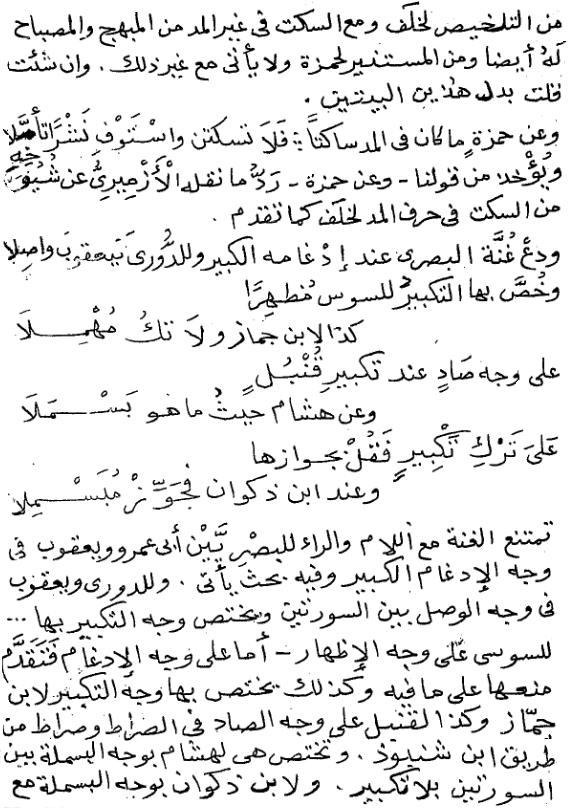 من التلخيص لخلف ومع السكت فى غير المد من المبهج والمصباح
لَهُ أيضا ومن المستنير لحمزة ولا يأتى مع غير ذلك . وإن شئت
قلت بدل هذين البيتين .
وعن حمزةٍ ما كان فى المد ساكتاً : فَلاَ تسكتن واسْتَوْفِ نَشْرًا تأمَّلا
ويُؤْخذ من قولنا - وعن حمزة - رَدُّ ما نقله الْأَزْمِيرِىُّ عن شُيُوخِهِ
من السكت فى حرف المد لخلَف كما تقدم .
ودعْ غُنَّة البصرى عند إدْغامه الكبير وللدُّورى كيعقوب واصِلا
وخُصَّ بها التكبيرُ للسوس مُظهِرًا
كذا لابن جماز ولاَ تكُ مُهْمِـلَا
على وجه صَادٍ عند تكبيرِ قُنْبُلٍ
وعن هشام حيثُ ما هو بَسْـمَلَا
عَلىَ تَرْكِ تَكْبِيرٍ فَقُلْ بجوازها
وعند ابن ذكوان فجَوِّزْ مُبَسْـمِلا
تمتنع الغنة مع اللام والراء للبصْرِيَّيْن أبى عمرو ويعقوب فى
وجه الإدغام الكبير وفيه بحث يأتى . وللدورى ويعقوب
فى وجه الوصل بين السورتين ويختص وجه التكبير بها ...
للسوسى عَلَى وجه الإظهار - أما على وجه الإدغام فَتَقَدَّم
منعها على ما فيه وكذلك يختص بها وجهُ التكبير لابن
جمّاز وكذا لقنبل على وجه الصاد فى الصراط وصراط من
طريق ابن شنبوذ . وتختص هى لهشام بوجه البسملة بين
السورتين بلا تكبير . ولابن ذكوان بوجه البسملة مع